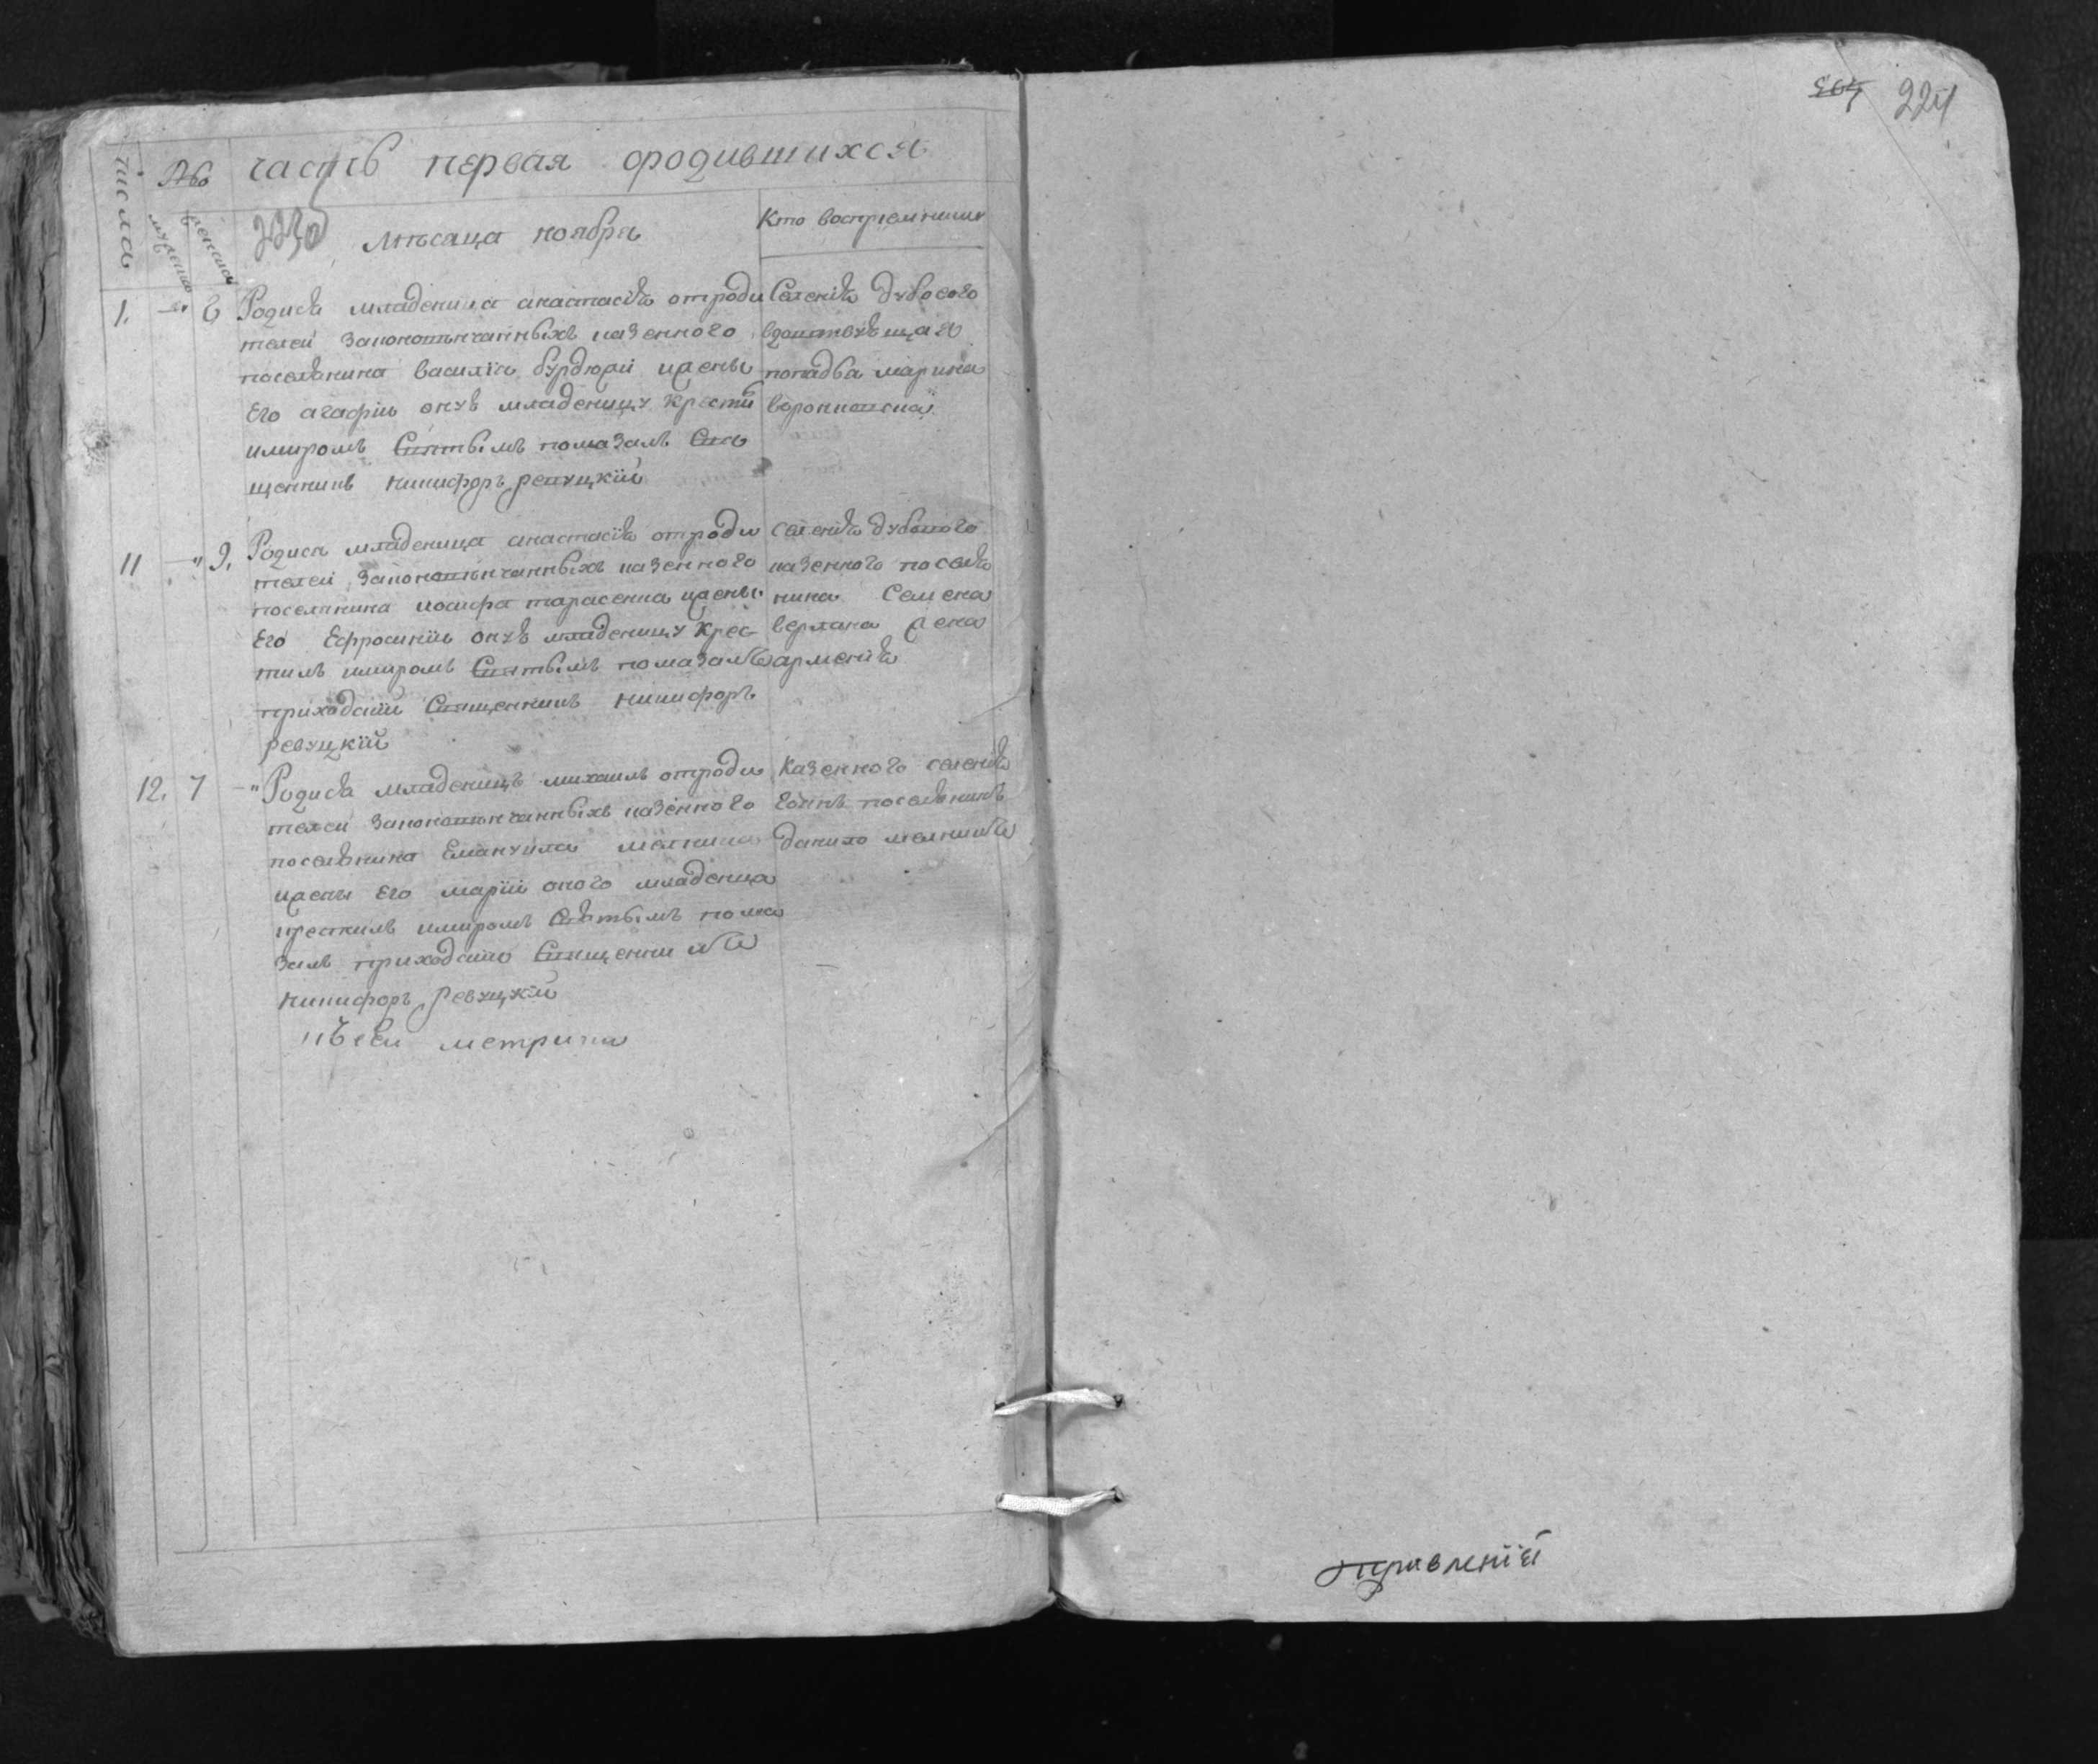 часть первая ородившихся
числа
мужеска
женска
мѣсаца ноября
Кто воспріемники
1. — " 8 Родися младеница анастасія отроди
телей законовѣнчанныхъ казенного
поселянина василія бурдюжи жены
Его агафіи оную младеницу крести
имиромъ Святымъ помазалъ Свя
щенникъ никифоръ ревуцкій
Селенія дубового
вдовствующая
попадья марина
11 — " 9. Родися младеница анастасія отроди
телей законовѣнчанныхъ казенного
поселянина иосифа тарасенка жены
Его Ефросиніи оную младеницу крес
тилъ имиромъ Святымъ помазалъ
приходскій Священникъ никифоръ
ревуцкій
селенія дубового
казенного поселя
нина Семена
верлана жена
12. 7 — " Родися младенецъ михаилъ отроди
телей законовѣнчанныхъ казенного
поселянина Емануила
жены Его маріи оного младенца
крестилъ имиромъ Святымъ пома
залъ приходскій Священникъ
никифоръ ревуцкій
Казенного селенія
поселянинъ
данило мелникъ
метрики
224